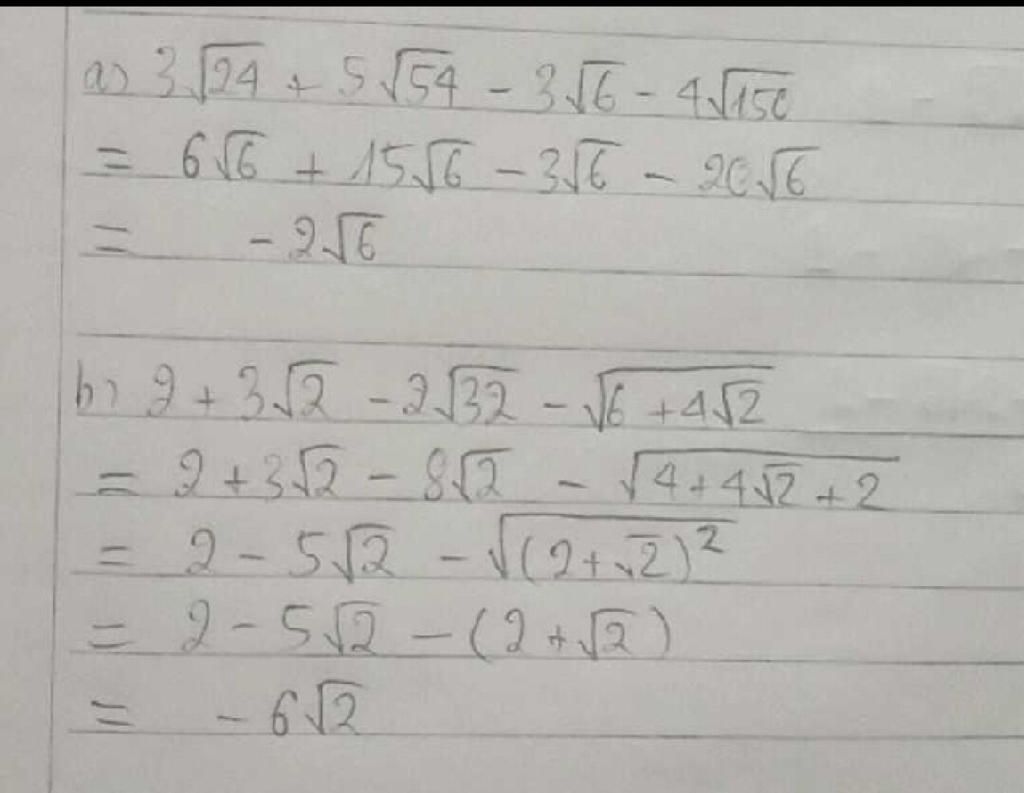 a) 3√24 + 5√54 - 3√6 - 4√150
= 6√6 + 15√6 - 3√6 - 20√6
= -2√6
b) 2 + 3√2 - 2√32 - √(6 + 4√2)
= 2 + 3√2 - 8√2 - √(4 + 4√2 + 2)
= 2 - 5√2 - √((2 + √2)²)
= 2 - 5√2 - (2 + √2)
= -6√2